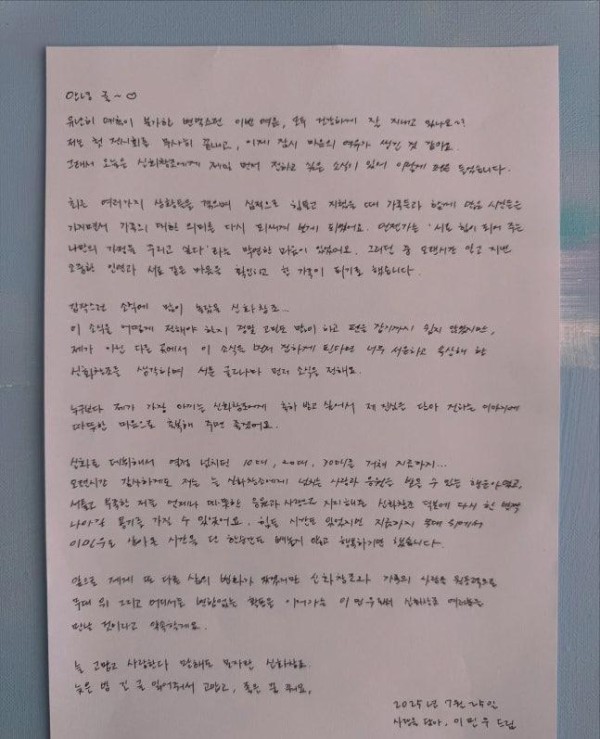 안녕 귤~♡
유난히 더위와 불쾌한 변덕스런 이번 여름, 모두 건강하게 잘 지내고 있나요?
저는 첫 전시회를 무사히 끝내고, 이제 잠시 마음의 여유가 생긴 것 같아요.
그래서 오늘은 신화창조에게 제일 먼저 전하고 싶은 소식이 있어 이렇게 펜을 들었습니다.
최근 여러가지 상황들을 겪으며 심적으로 힘들고 지쳤을 때 가족들과 함께 많은 시간들을
가지면서 가족의 대한 의미를 다시 되새기게 되었어요. 언젠가는 '서로 힘이 되어 주는
나만의 가정을 꾸리고 싶다'라는 막연한 마음이 있었어요. 그러던 중 오랜시간 알고 지낸
소중한 인연과 서로 같은 마음을 확인하고 한 가족이 되기로 했습니다.
갑작스런 소식에 많이 놀랐을 신화창조..
이 소식을 어떻게 전해야 할지 정말 고민도 많이 하고 펜을 잡기까지 쉽지 않았지만,
제가 아닌 다른 곳에서 이 소식을 먼저 접하게 된다면 너무 서운하고 속상해 할
신화창조를 생각하며 서툰 글이나마 먼저 소식을 전해요.
누구보다 제가 가장 아끼는 신화창조에게 축하 받고 싶어서 제 진심을 담아 전하는 이야기에
따뜻한 마음으로 축복해 주면 좋겠어요.
신화로 데뷔해서 열정 넘치던 10대, 20대, 30대를 거쳐 지금까지...
오랜시간 감사하게도 저는 늘 신화창조에게 넘치는 사랑과 응원을 받을 수 있는 행운아였고,
서툴고 부족한 저를 언제나 따뜻한 응원과 사랑으로 지지해주는 신화창조 덕분에 다시 한 번 더
나아갈 용기를 가질 수 있었어요. 힘든 시간도 있었지만 지금까지 무대 위에서
이민우로 살아온 시간을 단 한순간도 빼놓지 않고 행복하기만 했습니다.
앞으로 제게 또 다른 삶의 변화가 생겼지만 신화창조와 가족의 사랑을 원동력으로
무대 위 그리고 어디서든 변함없는 활동을 이어가는 이민우로서 신화창조 여러분을
만날 것이라고 약속할게요.
늘 고맙고 사랑한다 말해도 부족한 신화창조.
늦은 밤 긴 글 읽어줘서 고맙고, 좋은 꿈 꿔요.
2025년 7월 25일
사랑을 담아, 이민우 드림